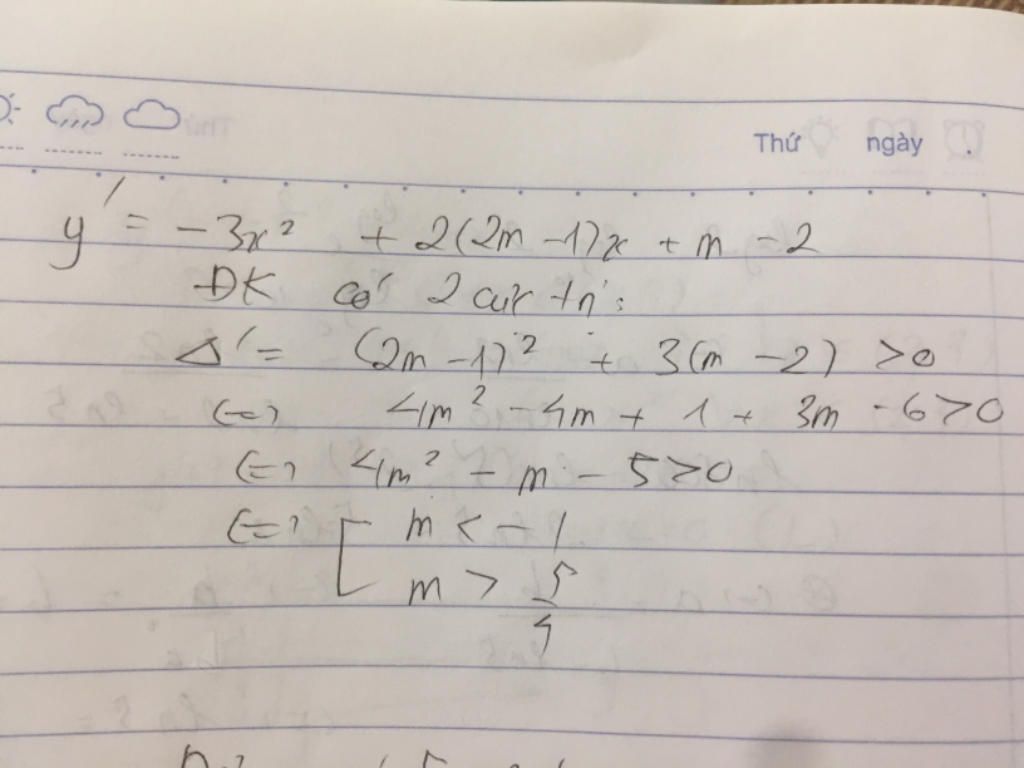 Thứ ngày
y' = -3x² + 2(2m -1)x + m - 2
ĐK có 2 cực trị:
Δ' = (2m -1)² + 3(m -2) >0
(=) 4m² - 4m + 1 + 3m - 6 >0
(=) 4m² - m - 5 >0
(=) [ m < -1
m > 5/4